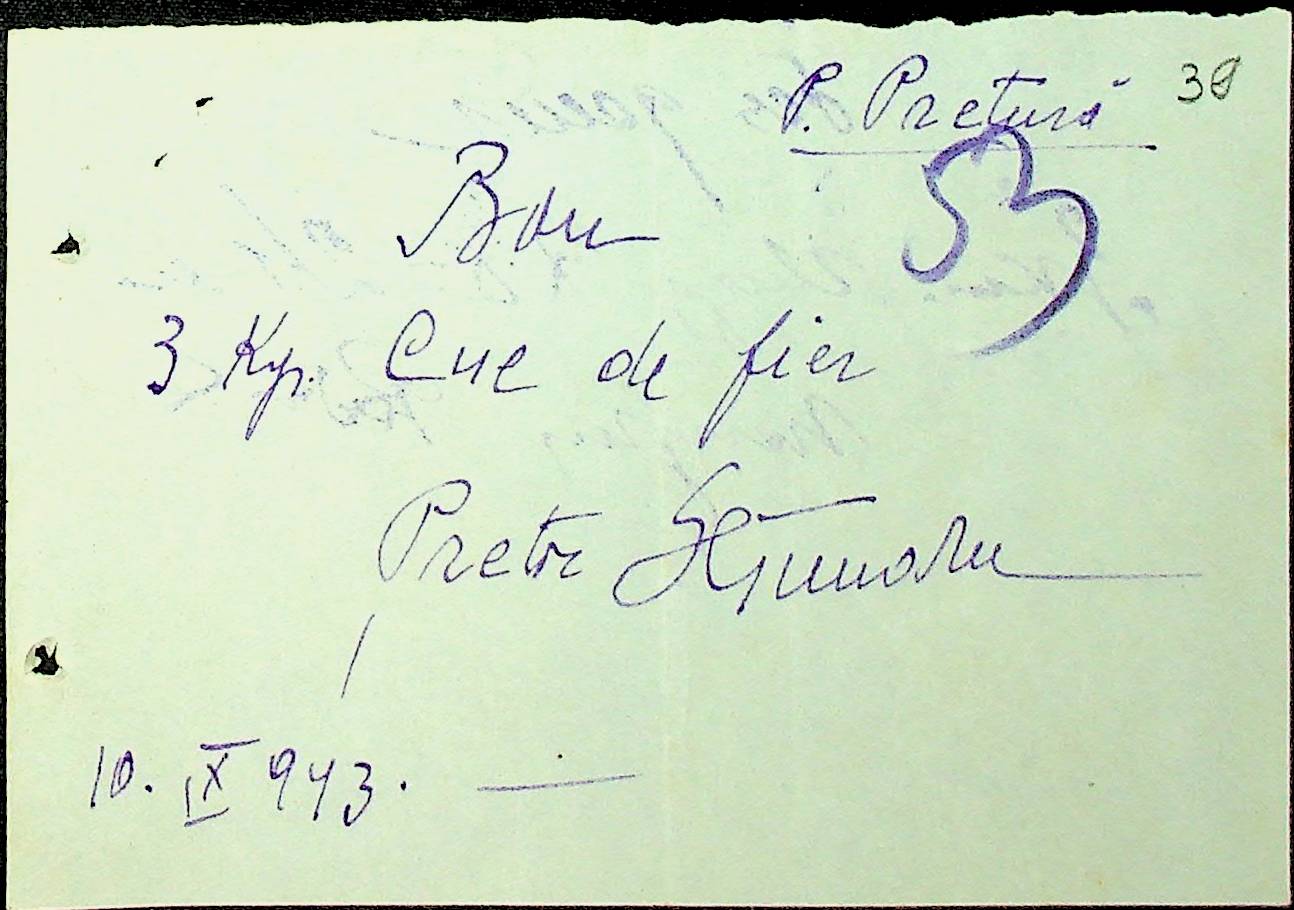 P. Pretură 39
53
Bon
3 Kgr. Cue de fier
Pretor
10. IX 943.